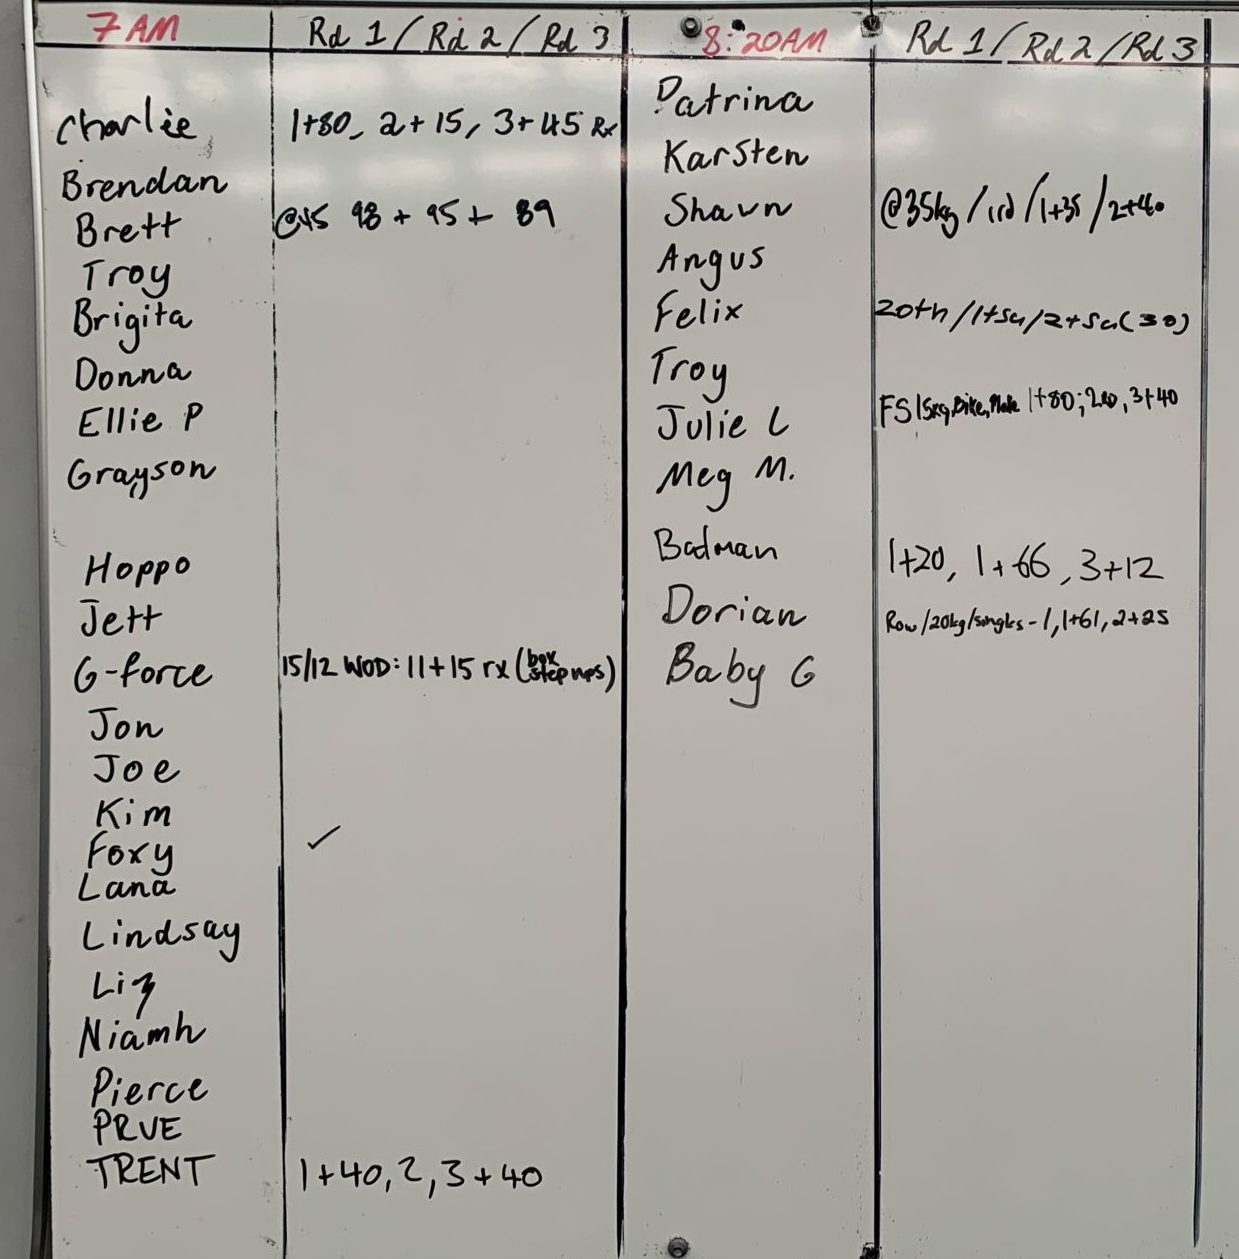 7 AM Rd 1 / Rd 2 / Rd 3
Charlie 1+80, 2+15, 3+45 Rx
Brendan
Brett @45 98 + 95 + 89
Troy
Brigita
Donna
Ellie P
Grayson
Hoppo
Jett
G-force 15/12 WOD: 11+15 rx (box step ups)
Jon
Joe
Kim
Foxy ✓
Lana
Lindsay
Liz
Niamh
Pierce
PRUE
TRENT 1+40, 2, 3+40
8:20AM Rd 1 / Rd 2 / Rd 3
Patrina
Karsten
Shaun @35kg / 1rd / 1+35 / 2+40
Angus
Felix /1+54/2+54(30)
Troy
Julie L FS 15kg, Bike, 1+80; 3+40
Meg M.
Badman 1+20, 1+66, 3+12
Dorian Row/20kg/singles - 1, 1+61, 2+25
Baby G